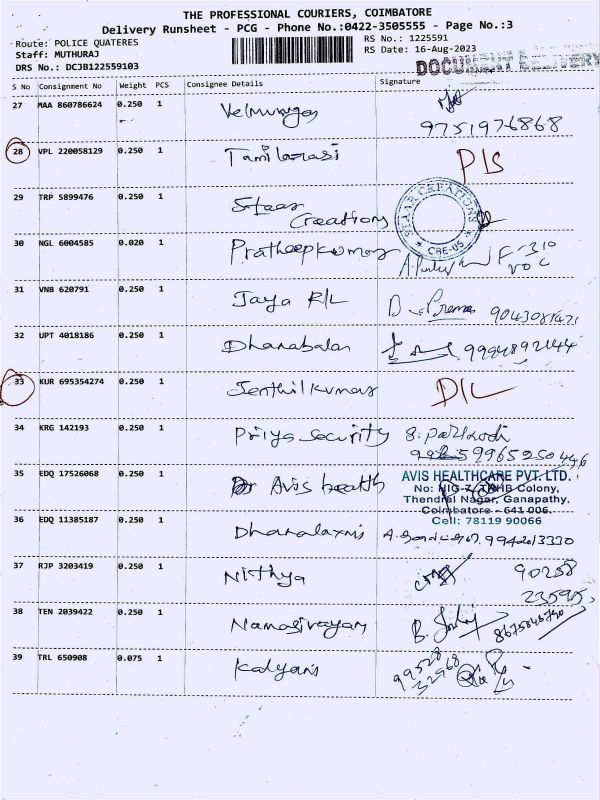 THE PROFESSIONAL COURIERS, COIMBATORE
Delivery Runsheet - PCG - Phone No.:0422-3505555 - Page No.:3
Route: POLICE QUATERES
RS No.: 1225591
Staff: MUTHURAJ
RS Date: 16-Aug-2023
DRS No.: DCJB122559103
DOCUMENT DELIVERY
S No Consignment No Weight PCS Consignee Details Signature
27 MAA 860786624 0.250 1 Velmurugan
9751976868
28 VPL 220058129 0.250 1 Tamilarasi D/S
29 TRP 5899476 0.250 1 Staar Creations
STAAR CREATIONS
CBE-05
30 NGL 6004585 0.020 1 Pratheepkumar F-310
VOC
31 VNB 620791 0.250 1 Jaya R/L D. Prema
32 UPT 4018186 0.250 1 Dhanabalan 9994892144
33 KUR 695354274 0.250 1 Senthilkumar D/L
34 KRG 142193 0.250 1 Priya Security
35 EDQ 17526068 0.250 1 Avis health
AVIS HEALTHCARE PVT. LTD.
Colony,
Thendral Nagar, Ganapathy,
Coimbatore - 641 006.
Cell: 78119 90066
36 EDQ 11385187 0.250 1 Dhanalaxmi 9942013330
37 RJP 3203419 0.250 1 Nithya 90258
23595
38 TEN 2039422 0.250 1 Namasivayam
8675845750
39 TRL 650908 0.075 1 Kalyani
99528
32968